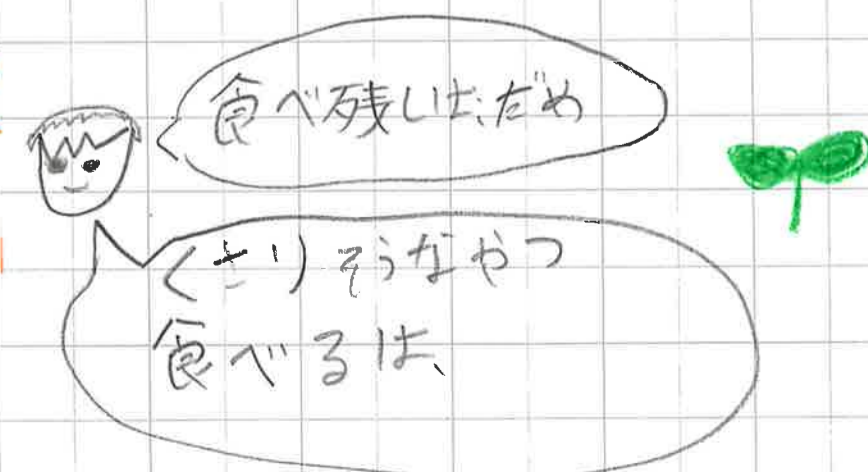 食べ残しは、だめ
くさりそうなやつ
食べるは、